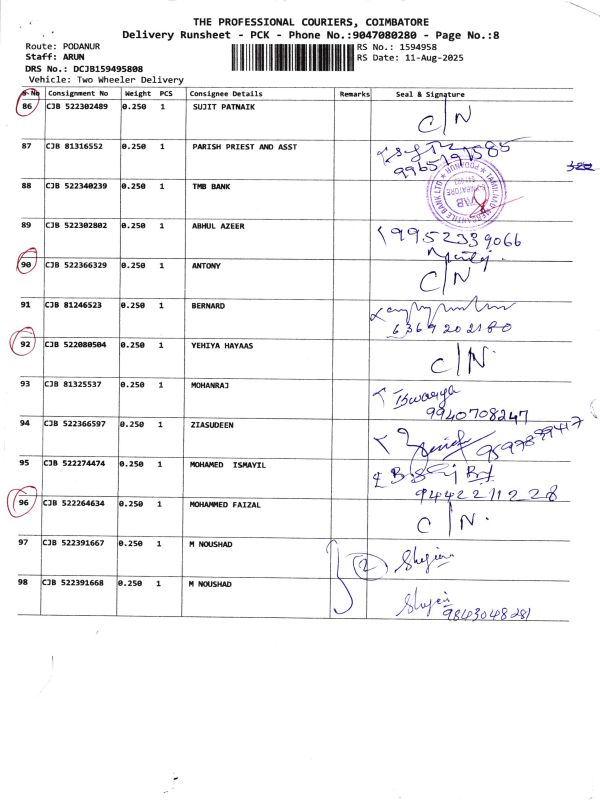 THE PROFESSIONAL COURIERS, COIMBATORE
Delivery Runsheet - PCK - Phone No.:9047080280 - Page No.:8
Route: PODANUR
RS No.: 1594958
Staff: ARUN
RS Date: 11-Aug-2025
DRS No.: DCJB159495808
Vehicle: Two Wheeler Delivery
S No Consignment No Weight PCS Consignee Details Remarks Seal & Signature
86 CJB 522302489 0.250 1 SUJIT PATNAIK C/N
87 CJB 81316552 0.250 1 PARISH PRIEST AND ASST
88 CJB 522340239 0.250 1 TMB BANK
TAMILNAD MERCANTILE BANK LTD
TMB
PODANUR
89 CJB 522302802 0.250 1 ABHUL AZEER 9952339066
90 CJB 522366329 0.250 1 ANTONY C/N
91 CJB 81246523 0.250 1 BERNARD
6369202180
92 CJB 522080504 0.250 1 YEHIYA HAYAAS C/N.
93 CJB 81325537 0.250 1 MOHANRAJ Iswarya
9940708247
94 CJB 522366597 0.250 1 ZIASUDEEN
95 CJB 522274474 0.250 1 MOHAMED ISMAYIL
9442211228
96 CJB 522264634 0.250 1 MOHAMMED FAIZAL C/N.
97 CJB 522391667 0.250 1 M NOUSHAD 2
98 CJB 522391668 0.250 1 M NOUSHAD
9843048281